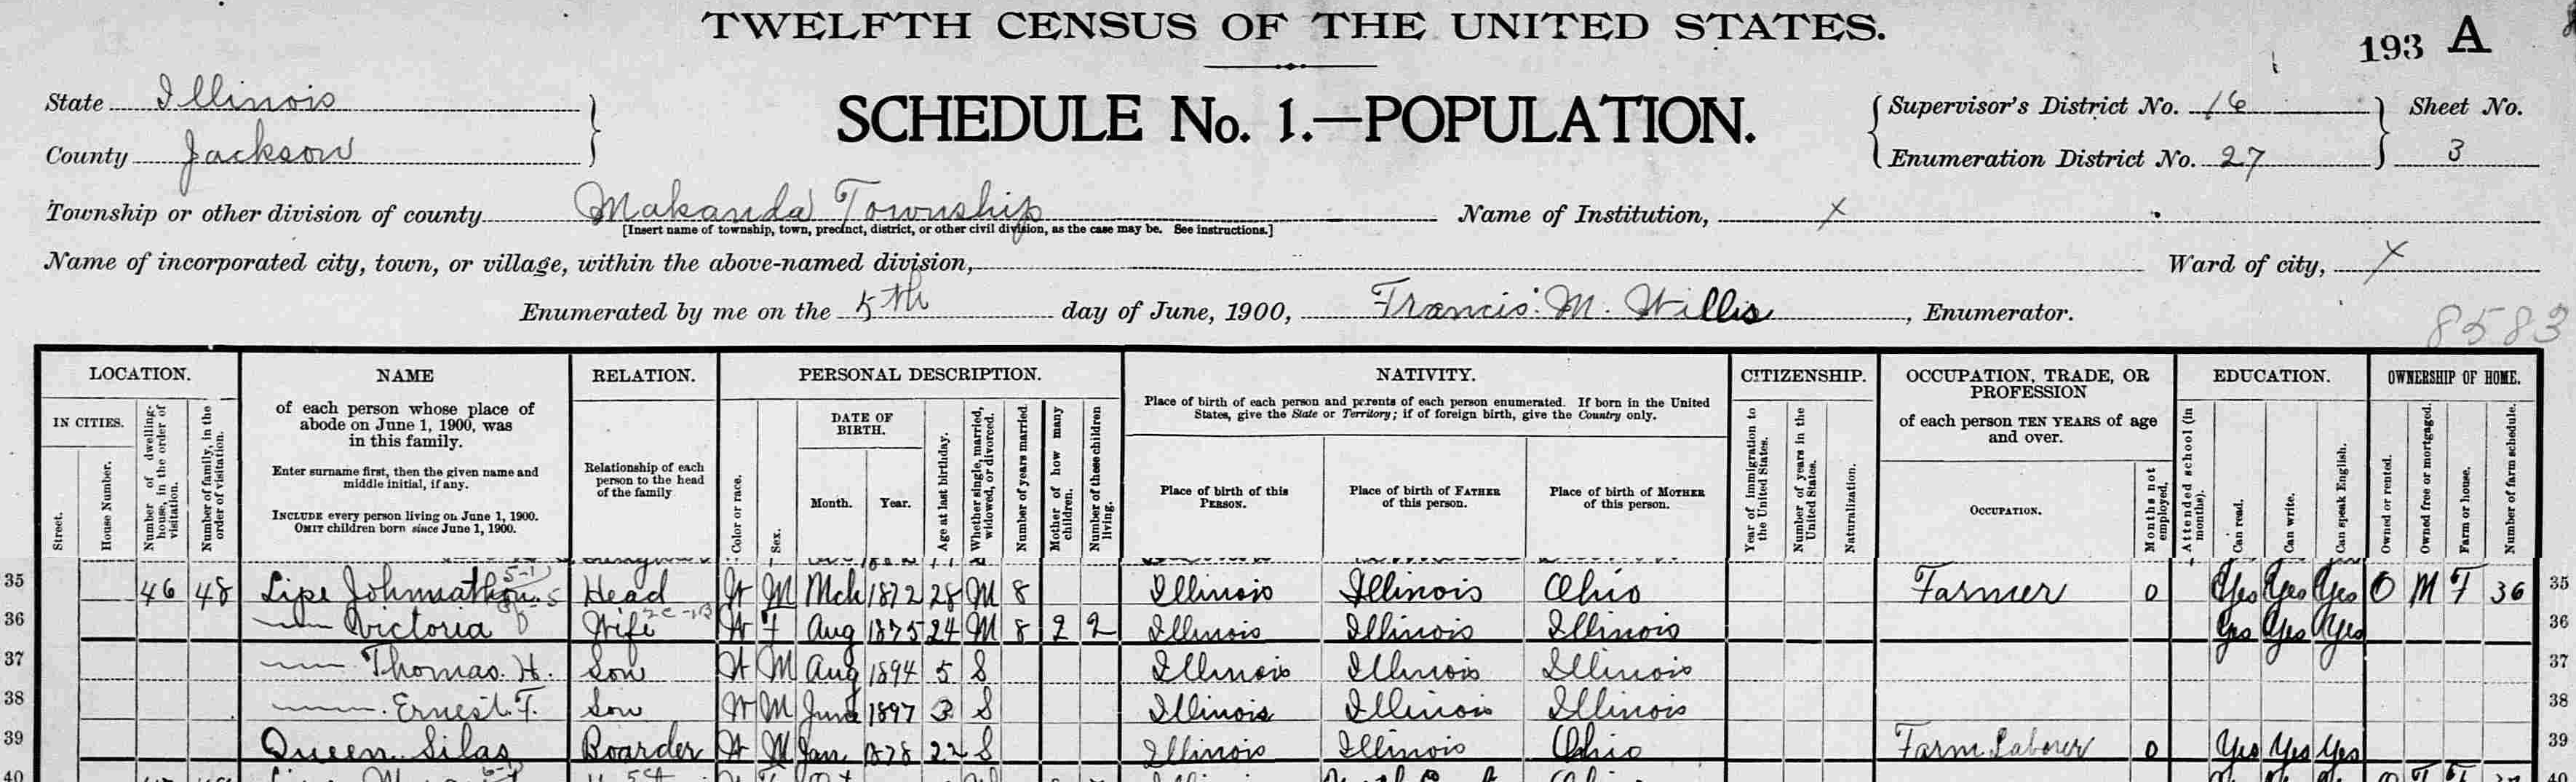 TWELFTH CENSUS OF THE UNITED STATES.
193 A
State Illinois
County Jackson
SCHEDULE No. 1.—POPULATION.
Supervisor's District No. 16
Enumeration District No. 27
Sheet No.
3
Township or other division of county Makanda Township
Name of Institution, X
[Insert name of township, town, precinct, district, or other civil division, as the case may be. See instructions.]
Name of incorporated city, town, or village, within the above-named division,
Ward of city, X
Enumerated by me on the 5th day of June, 1900, Francis M. Willis, Enumerator.
8583
LOCATION.
IN CITIES.
Street.
House Number.
Number of dwelling-house, in the order of visitation.
Number of family, in the order of visitation.
NAME
of each person whose place of
abode on June 1, 1900, was
in this family.
Enter surname first, then the given name and
middle initial, if any.
INCLUDE every person living on June 1, 1900.
OMIT children born since June 1, 1900.
RELATION.
Relationship of each
person to the head
of the family
PERSONAL DESCRIPTION.
Color or race.
Sex.
DATE OF
BIRTH.
Month.
Year.
Age at last birthday.
Whether single, married, widowed, or divorced.
Number of years married.
Mother of how many children.
Number of these children living.
NATIVITY.
Place of birth of each person and parents of each person enumerated. If born in the United
States, give the State or Territory; if of foreign birth, give the Country only.
Place of birth of this
PERSON.
Place of birth of FATHER
of this person.
Place of birth of MOTHER
of this person.
CITIZENSHIP.
Year of immigration to the United States.
Number of years in the United States.
Naturalization.
OCCUPATION, TRADE, OR
PROFESSION
of each person TEN YEARS of age
and over.
OCCUPATION.
Months not employed.
EDUCATION.
Attended school (in months).
Can read.
Can write.
Can speak English.
OWNERSHIP OF HOME.
Owned or rented.
Owned free or mortgaged.
Farm or house.
Number of farm schedule.
35 46 48 Lipe Johnnathon Head W M Mch 1872 28 M 8 Illinois Illinois Ohio Farmer 0 Yes Yes Yes O M F 36 35
36 Victoria Wife W F Aug 1875 24 M 8 2 2 Illinois Illinois Illinois Yes Yes Yes 36
37 Thomas. H. Son W M Aug 1894 5 S Illinois Illinois Illinois 37
38 Ernest. F. Son W M June 1897 3 S Illinois Illinois Illinois 38
39 Queen Silas Boarder W M Jan 1878 22 S Illinois Illinois Ohio Farm Laborer 0 Yes Yes Yes 39
40